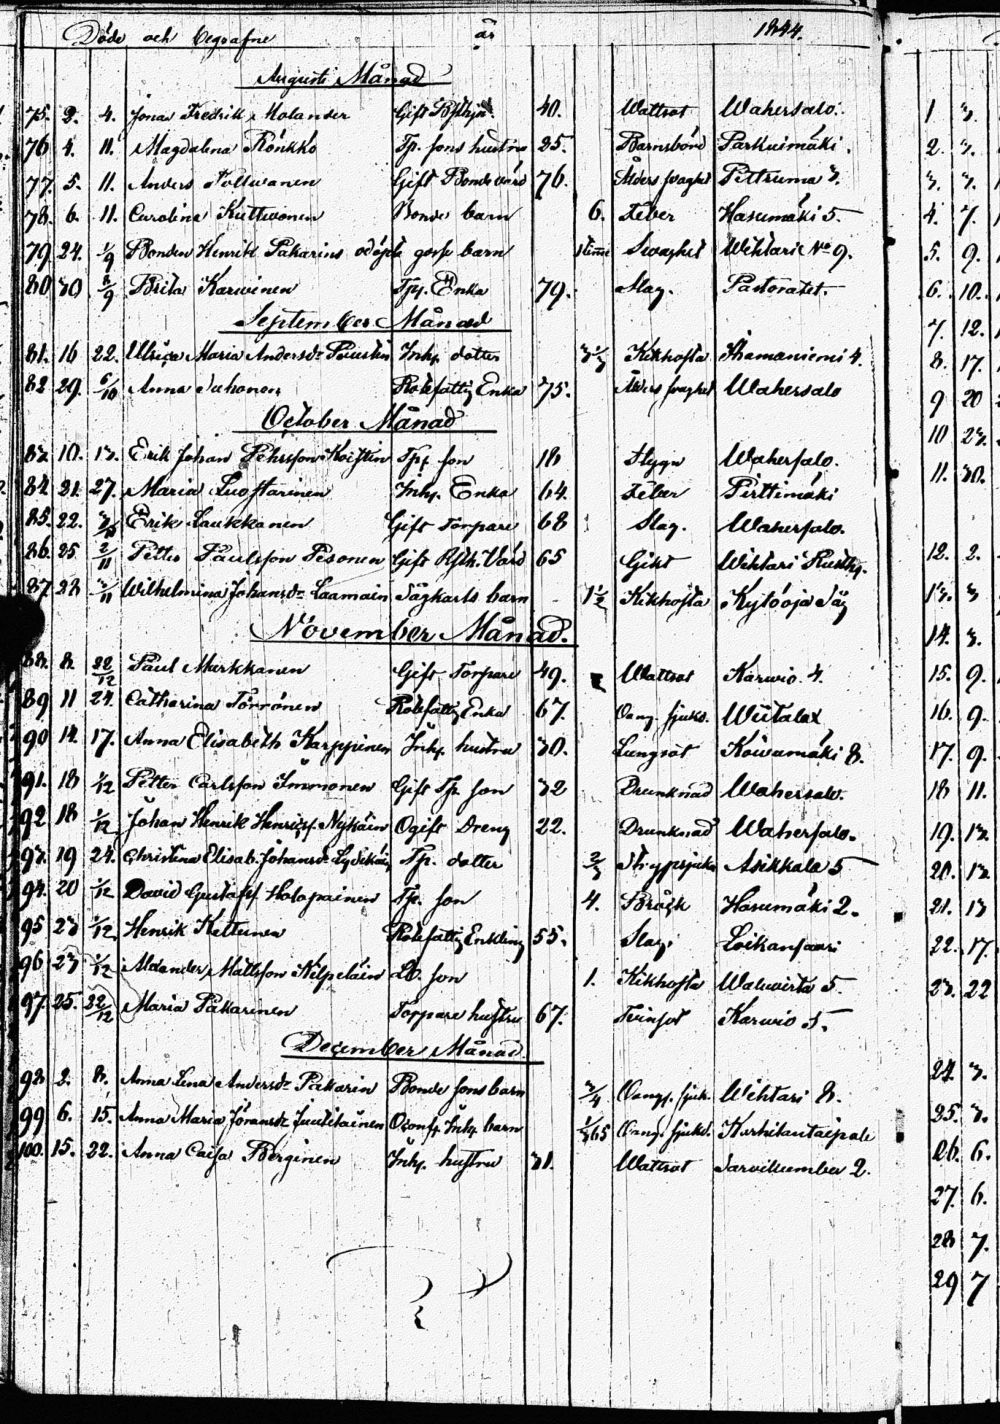 Döde och begrafne år 1844.
Augusti Månad
75. 2. 4. Jonas Fredrik Molander Gift 40. Wattsot Wahersalo.
76 4. 11. Magdalena Rönkkö Tp. sons hustru 25. Barnsbörd Parkuimäki.
77. 5. 11. Anders Gift Bondevärd 76. Ålders svaghet Pettruma 3.
78. 6. 11. Carolina Kuttwonen Bonde barn 6. Feber Hasumäki 5.
79. 24. 1/9 Bonden Henrik Pakarins odöpt goss barn timme Swaghet Wihtaris No 9.
80 30 8/9 Brita Karwinen Tp. Enka 79. Slag. Pastoratet.
September Månad
81. 16 22. Ulrica Maria Andersdr Puustin Inhs dotter Kikhosta Ihamaniemi 4.
82 29. 6/10 Anna Juhonen Rotefattig Enka 75. Ålders svaghet Wahersalo
October Månad
83. 10. 13. Erik Johan Pehrsson Koistin Tps son 18 Stygn Wahersalo.
84 21. 27. Maria Luostarinen Inhs Enka 64. Feber Pirttimäki
85. 22. 3/11 Erik Laukkanen Gift Torpare 68 Slag. Wahersalo.
86. 25 2/11 Petter Paulsson Pesonen Gift Rstk. Värd 65 Gikt Wihtari Rusth.
87. 28 3/11 Wilhelmina Johansdr Laamain Sågkarls barn 1 1/2 Kikhosta Kytöoja Såg
November Månad.
88. 8. 22/12 Paul Markkanen Gift Torpare 49. Wattsot Karwio 4.
89 11 24. Catharina Törrönen Rotefattig Enka 67. Oang. sjukd. Wiitalax
90 14. 17. Anna Elisabeth Karppinen Inhs hustru 30. Lungsot Koiwumäki 8.
91. 18 1/12 Petter Carlsson Immonen Gift Tp. son 32 Drunknad Wahersalo.
92 18 1/12 Johan Henrik Henricss. Nykäin Ogift Dreng 22. Drunknad Wahersalo.
93. 19 24. Christina Elisab. Johansdr Tp. dotter 2/3 Strypsjuka Asikkala 5
94. 20 1/12 David Gustafss Holopainen Tp. son 4. Bråck Hasumäki 2.
95 23 1/12 Henrik Kettunen Rotefattig Enkling 55. Slag. Loikansaari
96 23 1/12 Alexander Mattsson Kilpeläin son 1. Kikhosta Waluvirta 5.
97. 25. 22/12 Maria Pakarinen Torpare hustru 67. Tvinsot Karwio 5.
December Månad
98 2. 8. Anna Lena Andersdr Pakarin Bonde sons barn 3/4 Oangf. sjuk. Wihtari 8.
99 6. 15. Anna Maria Göransdr Juutilainen Oconf. Inhs barn Oang. sjukd. Kurhilantaipale
100. 15. 22. Anna Caisa Berginen Inhs hustru 31. Wattsot Sarvikumber 2.
1 3.
2. 3.
3. 3.
4. 7.
5. 9.
6. 10.
7. 12.
8. 17.
9 20
10 23.
11. 30.
12. 2.
13. 3
14. 3.
15. 9.
16. 9.
17. 9.
18 11.
19. 13.
20. 13.
21. 13
22. 17.
23. 22
24. 3.
25. 3.
26. 6.
27. 6.
28 7.
29 7